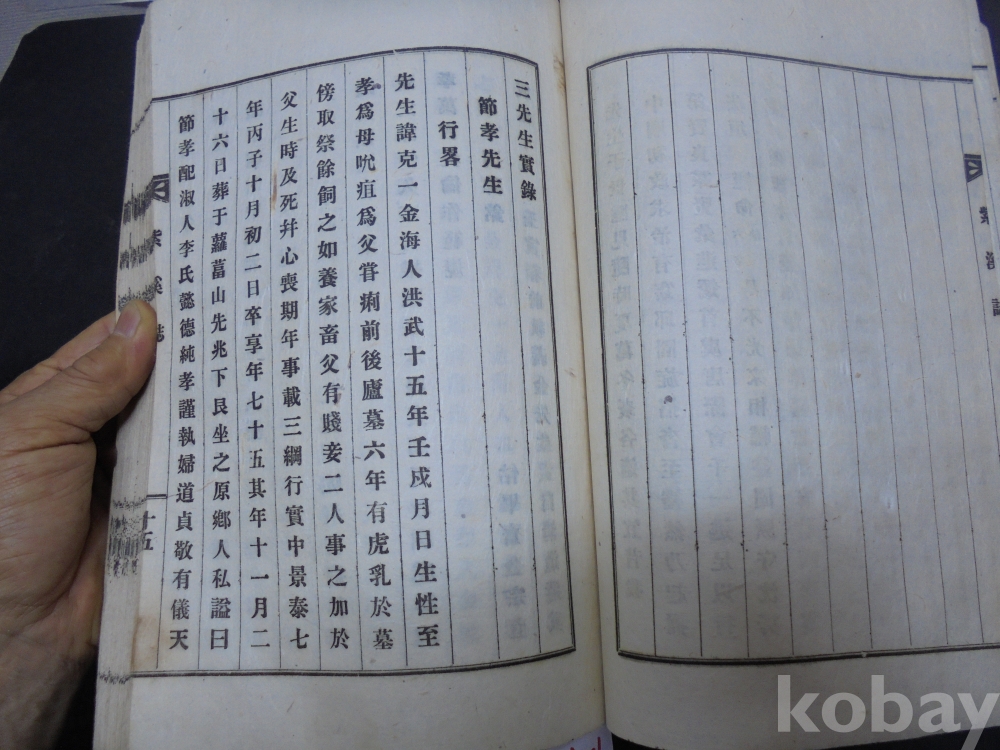 三先生實錄
節孝先生
行畧
先生諱克一金海人洪武十五年壬戍月日生性至
孝爲母吮疽爲父甞痢前後廬墓六年有虎乳於墓
傍取祭餘飼之如養家畜父有賤妾二人事之加於
父生時及死幷心喪期年事載三綱行實中景泰七
年丙子十月初二日卒享年七十五其年十一月二
十六日葬于蘿葍山先兆下艮坐之原鄕人私謚曰
節孝配淑人李氏懿德純孝謹執婦道貞敬有儀天
紫溪誌
十五
紫溪誌
kobay